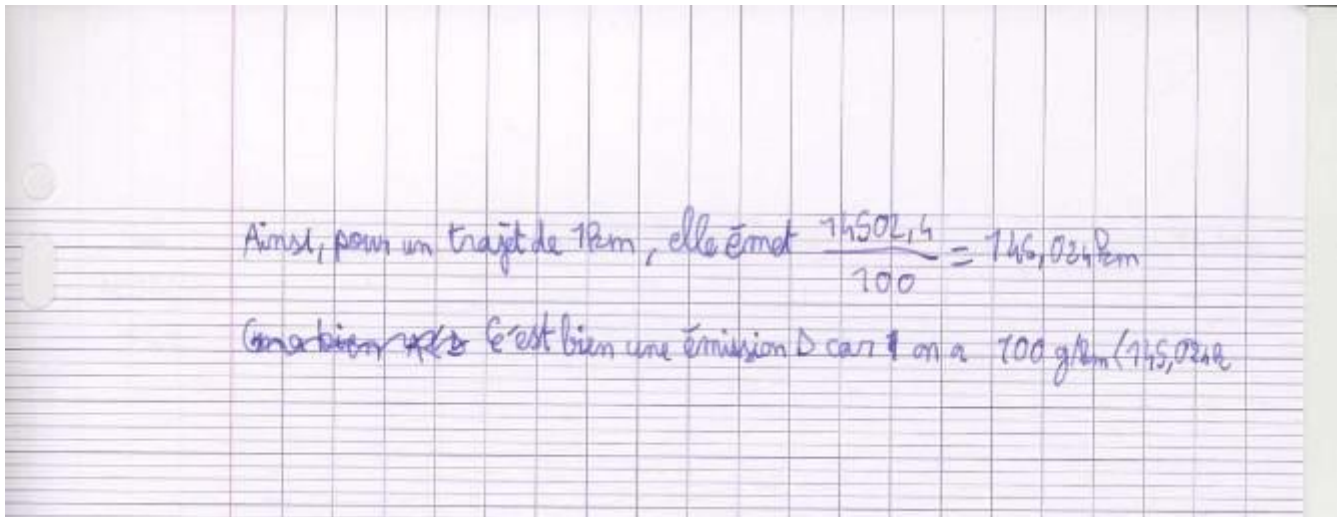 Ainsi, pour un trajet de 1km, elle émet 14502,4 / 100 = 145,024km
C'est bien une émission D car on a 100 g/km (145,024